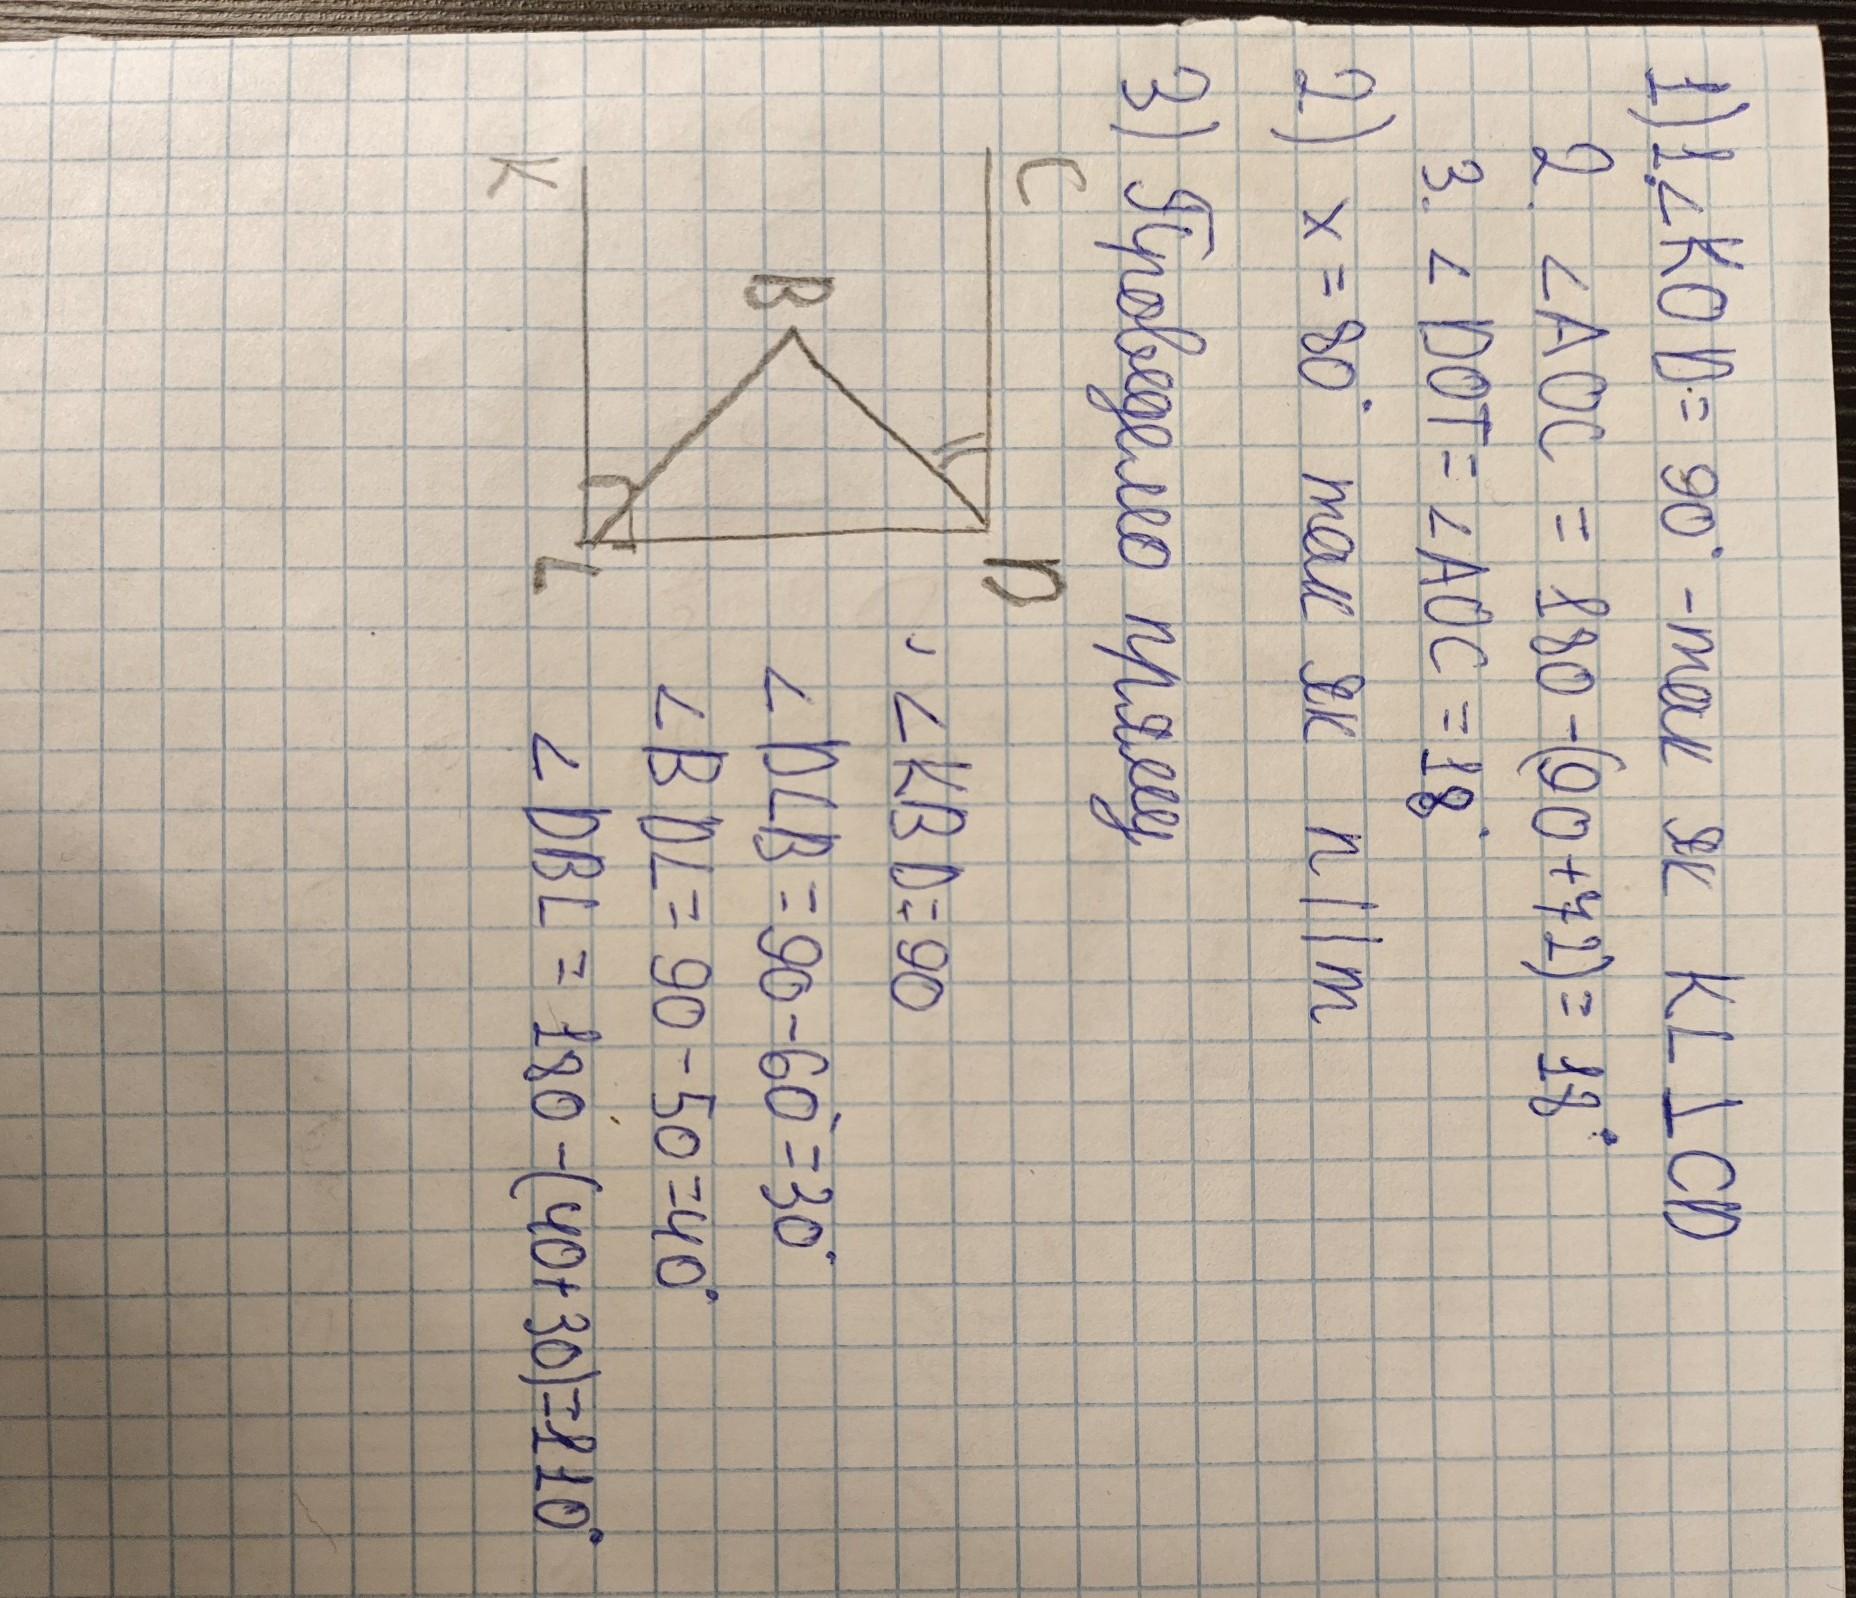 1) 1. ∠KOD = 90° - так як KL ⊥ CD
2. ∠AOC = 180 - (90 + 72) = 18°
3. ∠DOT = ∠AOC = 18°
2) x = 80° так як n || m
3) Проведемо пряму
C
D
B
K
L
∠KBD = 90
∠DLB = 90 - 60 = 30°
∠BDL = 90 - 50 = 40°
∠DBL = 180 - (40 + 30) = 110°